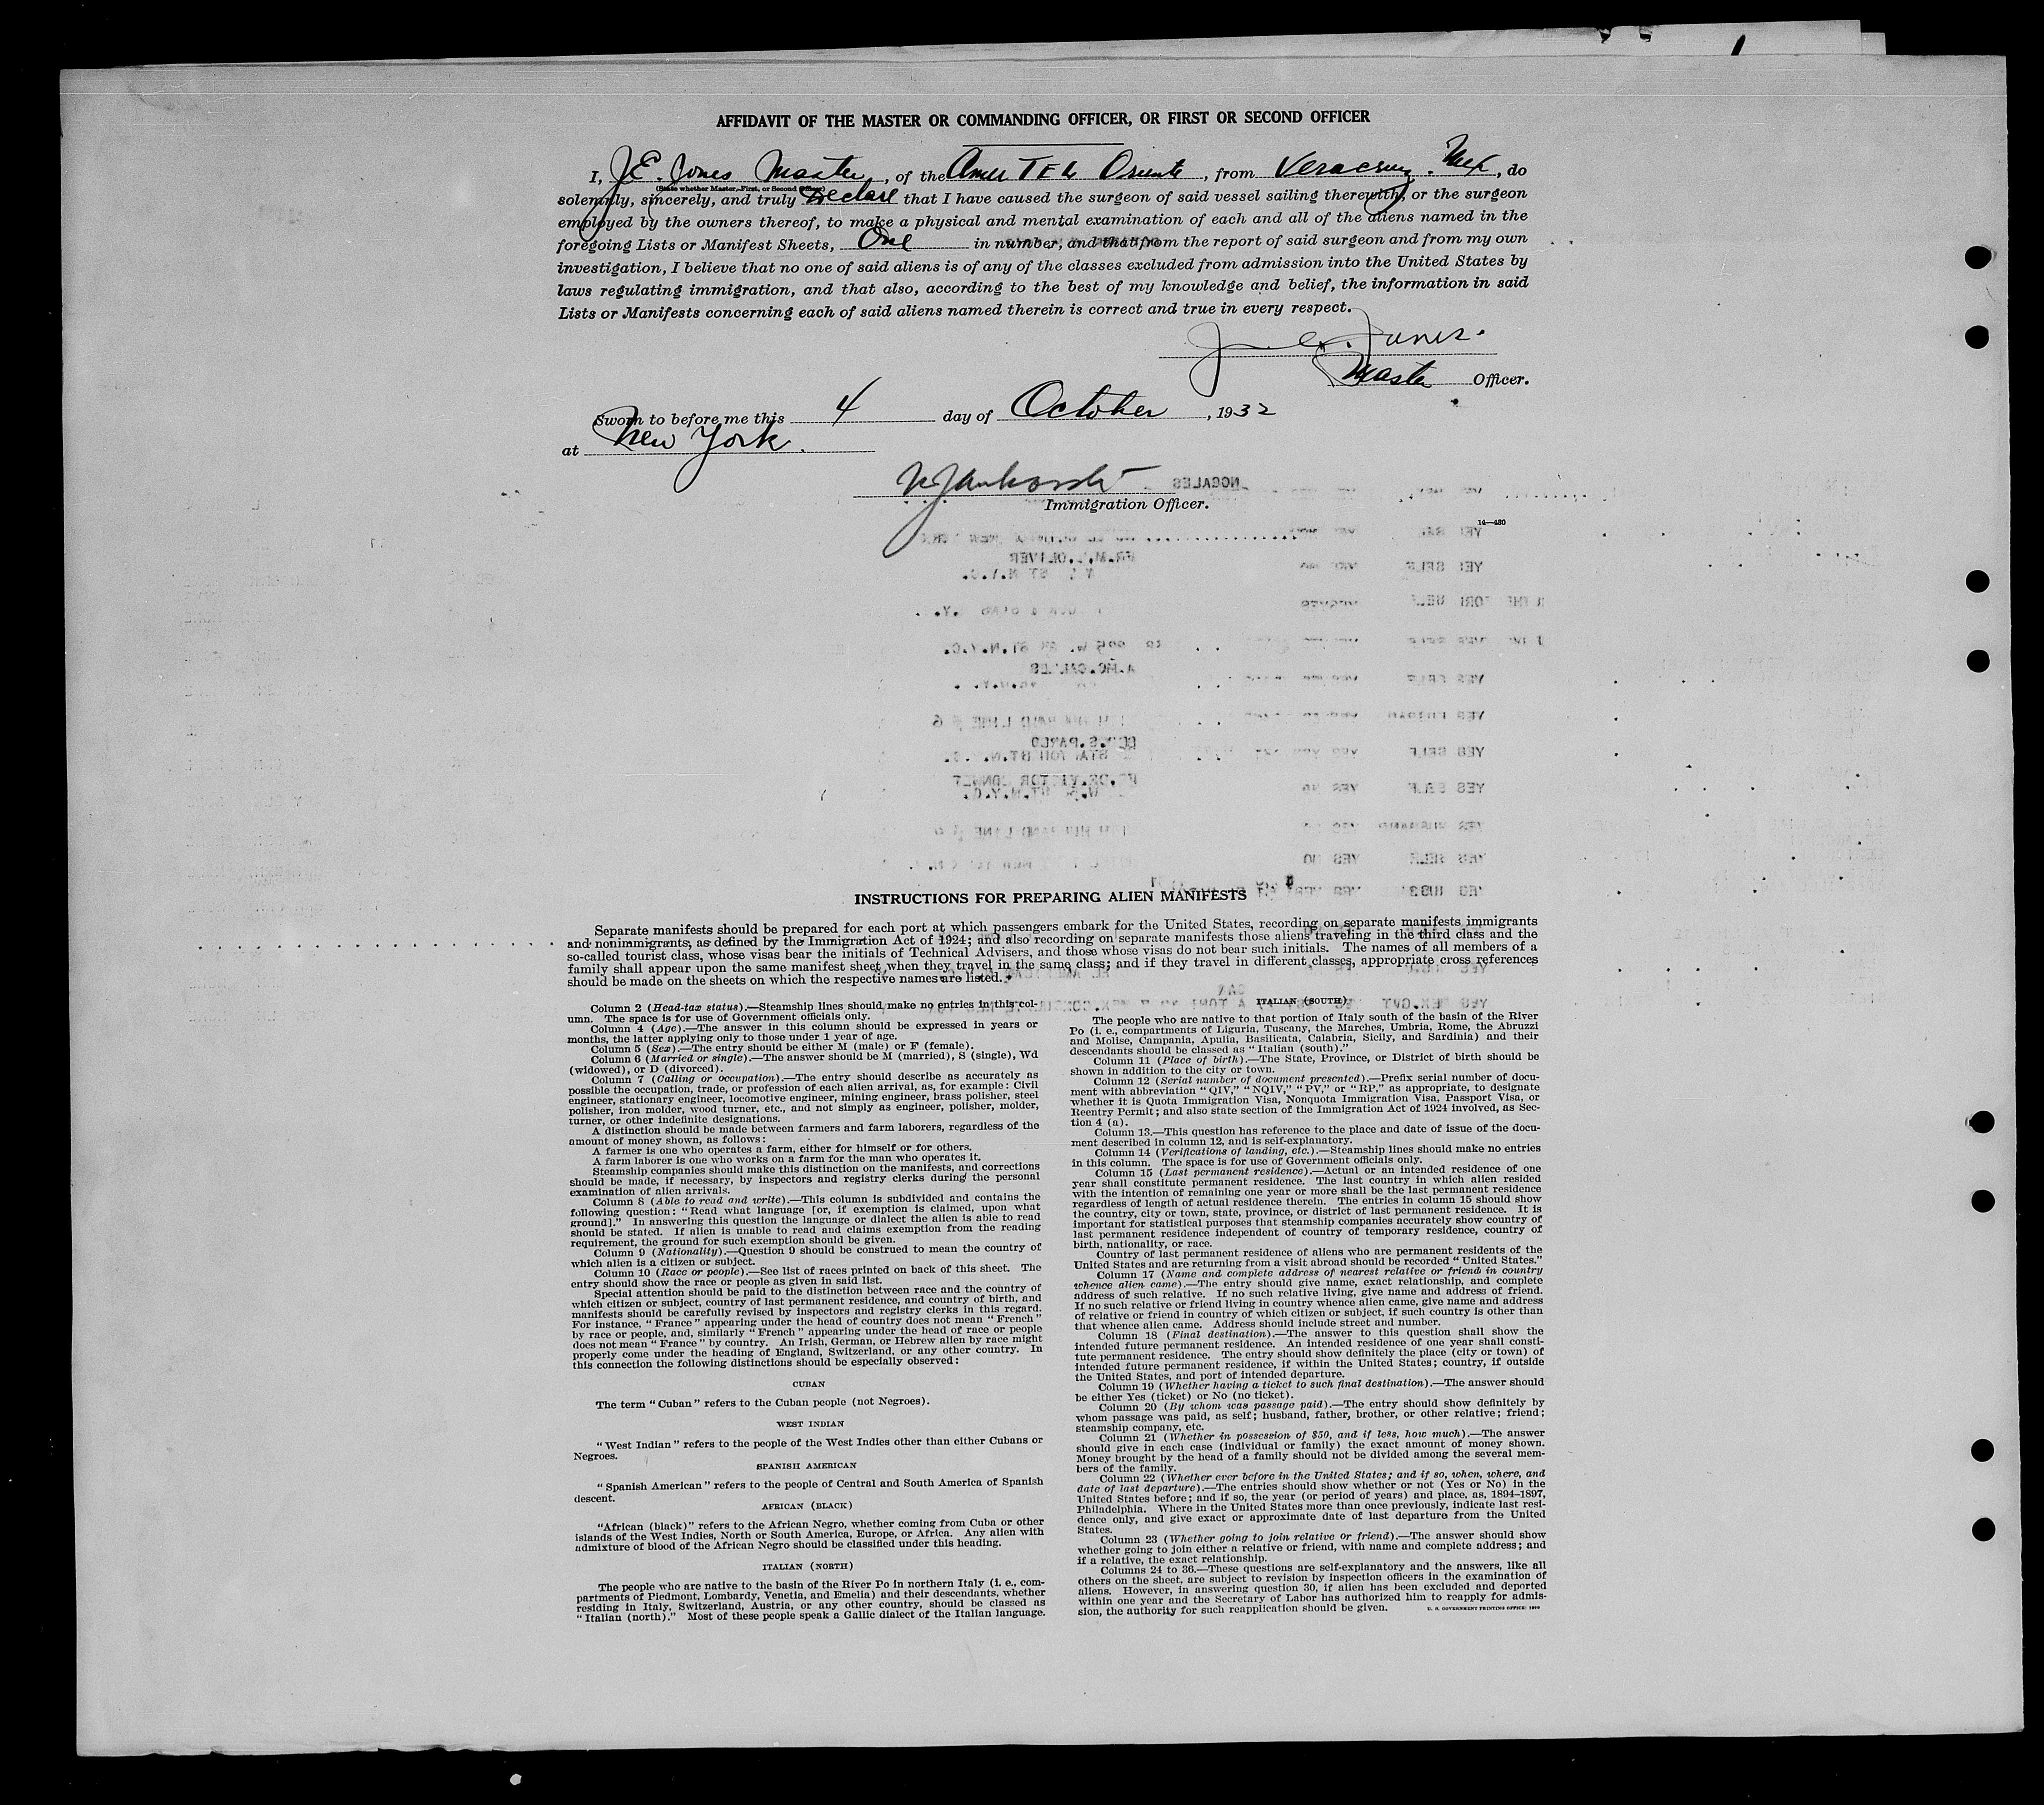 AFFIDAVIT OF THE MASTER OR COMMANDING OFFICER, OR FIRST OR SECOND OFFICER
I, J.E. Jones Master, of the Amer Oriente, from Veracruz. Mex, do
(State whether Master, First, or Second Officer)
solemnly, sincerely, and truly Declare that I have caused the surgeon of said vessel sailing therewith, or the surgeon
employed by the owners thereof, to make a physical and mental examination of each and all of the aliens named in the
foregoing Lists or Manifest Sheets, One in number, and that from the report of said surgeon and from my own
investigation, I believe that no one of said aliens is of any of the classes excluded from admission into the United States by
laws regulating immigration, and that also, according to the best of my knowledge and belief, the information in said
Lists or Manifests concerning each of said aliens named therein is correct and true in every respect.
J. E. Jones.
Master Officer.
Sworn to before me this 4 day of October, 1932
at New York.
Immigration Officer.
14—430
INSTRUCTIONS FOR PREPARING ALIEN MANIFESTS
Separate manifests should be prepared for each port at which passengers embark for the United States, recording on separate manifests immigrants
and nonimmigrants, as defined by the Immigration Act of 1924; and also recording on separate manifests those aliens traveling in the third class and the
so-called tourist class, whose visas bear the initials of Technical Advisers, and those whose visas do not bear such initials. The names of all members of a
family shall appear upon the same manifest sheet when they travel in the same class; and if they travel in different classes, appropriate cross references
should be made on the sheets on which the respective names are listed.
Column 2 (Head-tax status).—Steamship lines should make no entries in this col-
umn. The space is for use of Government officials only.
Column 4 (Age).—The answer in this column should be expressed in years or
months, the latter applying only to those under 1 year of age.
Column 5 (Sex).—The entry should be either M (male) or F (female).
Column 6 (Married or single).—The answer should be M (married), S (single), Wd
(widowed), or D (divorced).
Column 7 (Calling or occupation).—The entry should describe as accurately as
possible the occupation, trade, or profession of each alien arrival, as, for example: Civil
engineer, stationary engineer, locomotive engineer, mining engineer, brass polisher, steel
polisher, iron molder, wood turner, etc., and not simply as engineer, polisher, molder,
turner, or other indefinite designations.
A distinction should be made between farmers and farm laborers, regardless of the
amount of money shown, as follows:
A farmer is one who operates a farm, either for himself or for others.
A farm laborer is one who works on a farm for the man who operates it.
Steamship companies should make this distinction on the manifests, and corrections
should be made, if necessary, by inspectors and registry clerks during the personal
examination of alien arrivals.
Column 8 (Able to read and write).—This column is subdivided and contains the
following question: "Read what language [or, if exemption is claimed, upon what
ground]." In answering this question the language or dialect the alien is able to read
should be stated. If alien is unable to read and claims exemption from the reading
requirement, the ground for such exemption should be given.
Column 9 (Nationality).—Question 9 should be construed to mean the country of
which alien is a citizen or subject.
Column 10 (Race or people).—See list of races printed on back of this sheet. The
entry should show the race or people as given in said list.
Special attention should be paid to the distinction between race and the country of
which citizen or subject, country of last permanent residence, and country of birth, and
manifests should be carefully revised by inspectors and registry clerks in this regard.
For instance, "France" appearing under the head of country does not mean "French"
by race or people, and, similarly "French" appearing under the head of race or people
does not mean "France" by country. An Irish, German, or Hebrew alien by race might
properly come under the heading of England, Switzerland, or any other country. In
this connection the following distinctions should be especially observed:
CUBAN
The term "Cuban" refers to the Cuban people (not Negroes).
WEST INDIAN
"West Indian" refers to the people of the West Indies other than either Cubans or
Negroes.
SPANISH AMERICAN
"Spanish American" refers to the people of Central and South America of Spanish
descent.
AFRICAN (BLACK)
"African (black)" refers to the African Negro, whether coming from Cuba or other
islands of the West Indies, North or South America, Europe, or Africa. Any alien with
admixture of blood of the African Negro should be classified under this heading.
ITALIAN (NORTH)
The people who are native to the basin of the River Po in northern Italy (i. e., com-
partments of Piedmont, Lombardy, Venetia, and Emelia) and their descendants, whether
residing in Italy, Switzerland, Austria, or any other country, should be classed as
"Italian (north)." Most of these people speak a Gallic dialect of the Italian language.
ITALIAN (SOUTH)
The people who are native to that portion of Italy south of the basin of the River
Po (i. e., compartments of Liguria, Tuscany, the Marches, Umbria, Rome, the Abruzzi
and Molise, Campania, Apulia, Basilicata, Calabria, Sicily, and Sardinia) and their
descendants should be classed as "Italian (south)."
Column 11 (Place of birth).—The State, Province, or District of birth should be
shown in addition to the city or town.
Column 12 (Serial number of document presented).—Prefix serial number of docu-
ment with abbreviation "QIV," "NQIV," "PV," or "RP," as appropriate, to designate
whether it is Quota Immigration Visa, Nonquota Immigration Visa, Passport Visa, or
Reentry Permit; and also state section of the Immigration Act of 1924 involved, as Sec-
tion 4 (a).
Column 13.—This question has reference to the place and date of issue of the docu-
ment described in column 12, and is self-explanatory.
Column 14 (Verifications of landing, etc.).—Steamship lines should make no entries
in this column. The space is for use of Government officials only.
Column 15 (Last permanent residence).—Actual or an intended residence of one
year shall constitute permanent residence. The last country in which alien resided
with the intention of remaining one year or more shall be the last permanent residence
regardless of length of actual residence therein. The entries in column 15 should show
the country, city or town, state, province, or district of last permanent residence. It is
important for statistical purposes that steamship companies accurately show country of
last permanent residence independent of country of temporary residence, country of
birth, nationality, or race.
Country of last permanent residence of aliens who are permanent residents of the
United States and are returning from a visit abroad should be recorded "United States."
Column 17 (Name and complete address of nearest relative or friend in country
whence alien came).—The entry should give name, exact relationship, and complete
address of such relative. If no such relative living, give name and address of friend.
If no such relative or friend living in country whence alien came, give name and address
of relative or friend in country of which citizen or subject, if such country is other than
that whence alien came. Address should include street and number.
Column 18 (Final destination).—The answer to this question shall show the
intended future permanent residence. An intended residence of one year shall consti-
tute permanent residence. The entry should show definitely the place (city or town) of
intended future permanent residence, if within the United States; country, if outside
the United States, and port of intended departure.
Column 19 (Whether having a ticket to such final destination).—The answer should
be either Yes (ticket) or No (no ticket).
Column 20 (By whom was passage paid).—The entry should show definitely by
whom passage was paid, as self; husband, father, brother, or other relative; friend;
steamship company, etc.
Column 21 (Whether in possession of $50, and if less, how much).—The answer
should give in each case (individual or family) the exact amount of money shown.
Money brought by the head of a family should not be divided among the several mem-
bers of the family.
Column 22 (Whether ever before in the United States; and if so, when, where, and
date of last departure).—The entries should show whether or not (Yes or No) in the
United States before; and if so, the year (or period of years) and place, as, 1894–1897,
Philadelphia. Where in the United States more than once previously, indicate last resi-
dence only, and give exact or approximate date of last departure from the United
States.
Column 23 (Whether going to join relative or friend).—The answer should show
whether going to join either a relative or friend, with name and complete address; and
if a relative, the exact relationship.
Columns 24 to 36.—These questions are self-explanatory and the answers, like all
others on the sheet, are subject to revision by inspection officers in the examination of
aliens. However, in answering question 30, if alien has been excluded and deported
within one year and the Secretary of Labor has authorized him to reapply for admis-
sion, the authority for such reapplication should be given.
U. S. GOVERNMENT PRINTING OFFICE